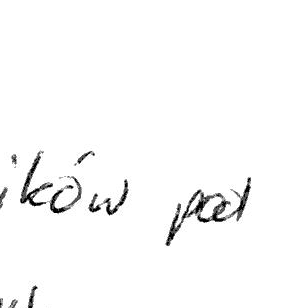 ików pod